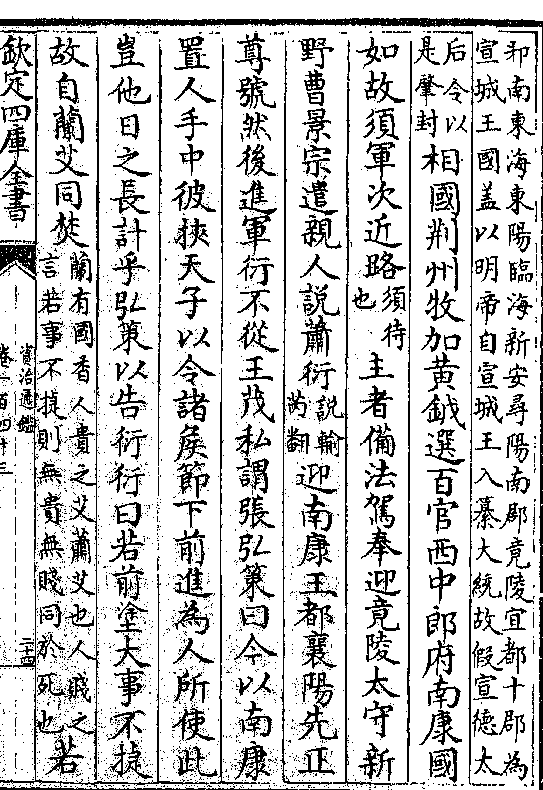 邪南東海東陽臨海新安尋陽南郡竟陵宜都十郡為
宣城王國盖以明帝自宣城王入纂大統故假宣德太
后令以
是肇封
相國荆州牧加黄鉞選百官西中郎府南康國
如故須軍次近路須待也主者備法駕奉迎竟陵太守新
野曹景宗遣親人說蕭衍說輸芮翻迎南康王都襄陽先正
尊號然後進軍衍不從王茂私謂張弘策曰今以南康
置人手中彼挾天子以令諸侯節下前進為人所使此
豈他日之長計乎弘策以告衍衍曰若前塗大事不捷
故自蘭艾同焚蘭有國香人貴之艾蕭艾也人賤之言若事不捷則無貴無賤同於死也若
欽定四庫全書
資治通鑑
卷一百四十三
二十四